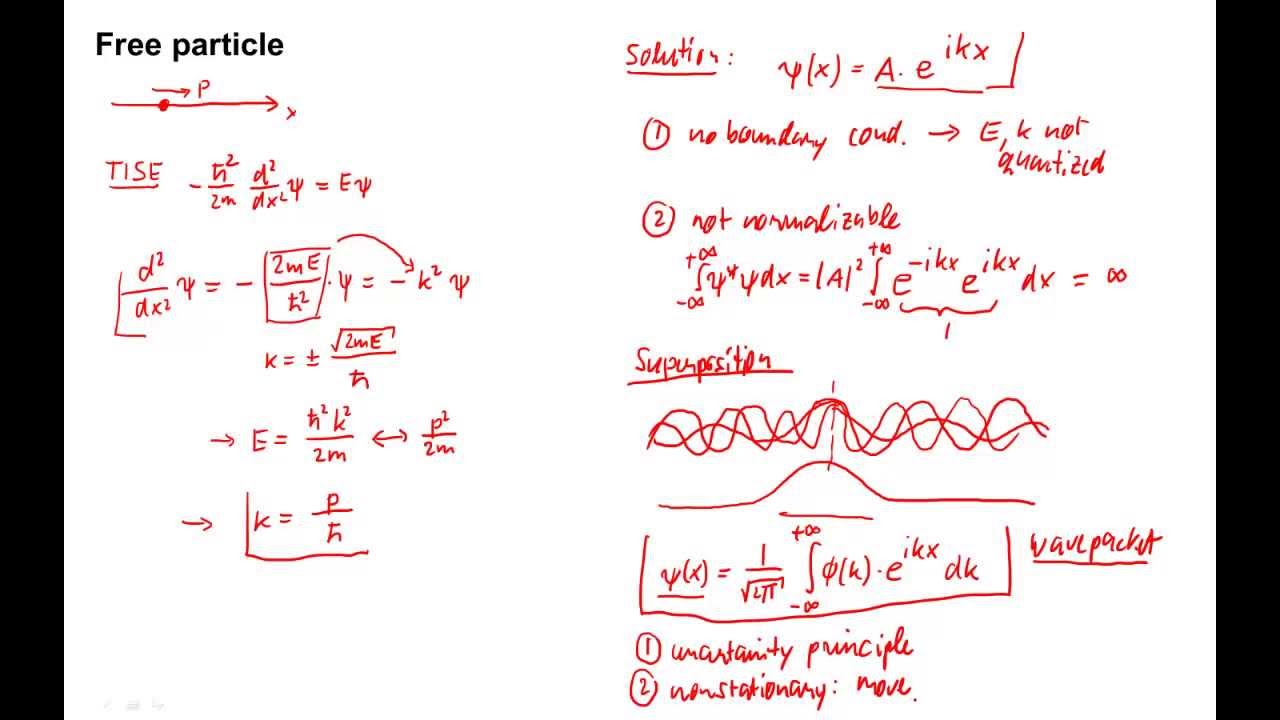 Free particle
P
x
TISE
-ħ²/2m d²/dx² ψ = Eψ
d²/dx² ψ = - 2mE/ħ² · ψ = - k² ψ
k = ± √2mE/ħ
→ E = ħ²k²/2m ↔ p²/2m
→ k = p/ħ
Solution: ψ(x) = A · e^{ikx}
① no boundary cond. → E, k not
quantized
② not normalizable
∫_{-∞}^{+∞} ψ*ψdx = |A|² ∫_{-∞}^{+∞} e^{-ikx} e^{ikx} dx = ∞
1
Superposition
ψ(x) = 1/√2π ∫_{-∞}^{+∞} ϕ(k) · e^{ikx} dk
wavepacket
① uncertainity principle
② nonstationary: move.